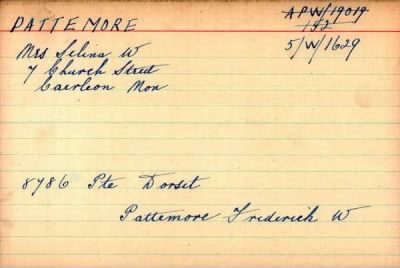 PATTEMORE
APW/19019
1921
5/W/1629
Mrs Selina W
7 Church Street
Caerleon Mon
8786 Pte Dorset
Pattemore Frederick W